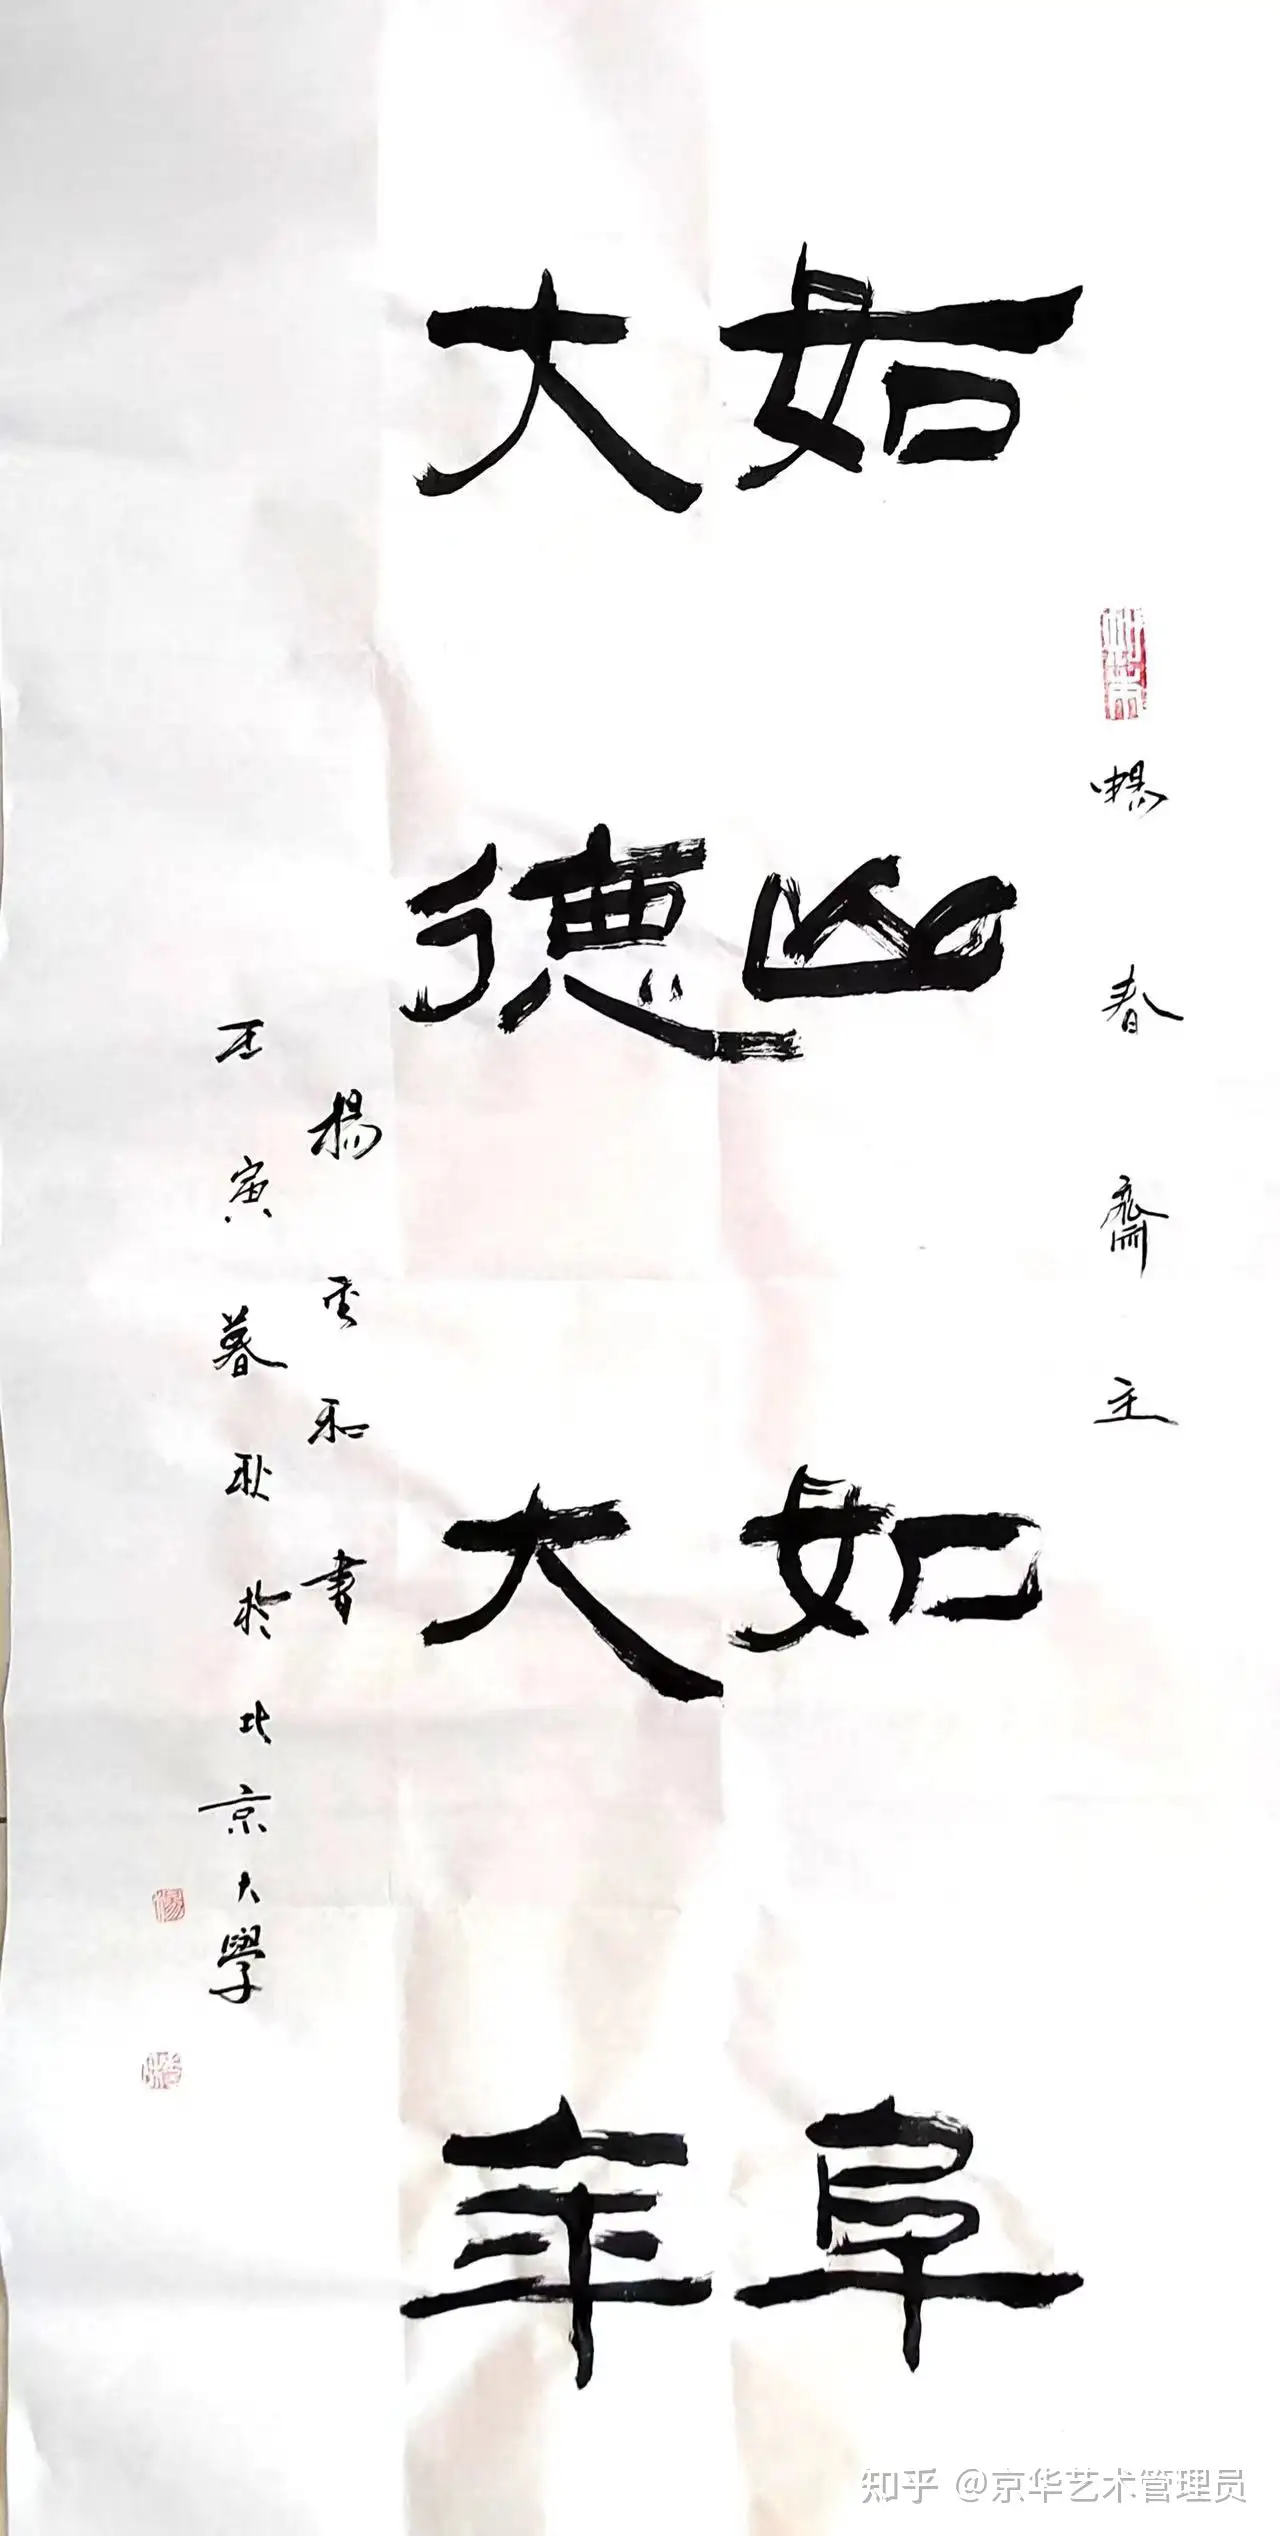 暢春齋主
如山如阜
大德大年
楊雲和書
壬寅暮秋於北京大學
知乎 @京华艺术管理员